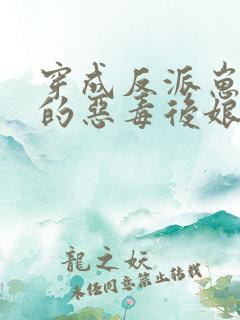 穿成反派崽
的惡毒後娘
龍之妖
未经同意禁止转载